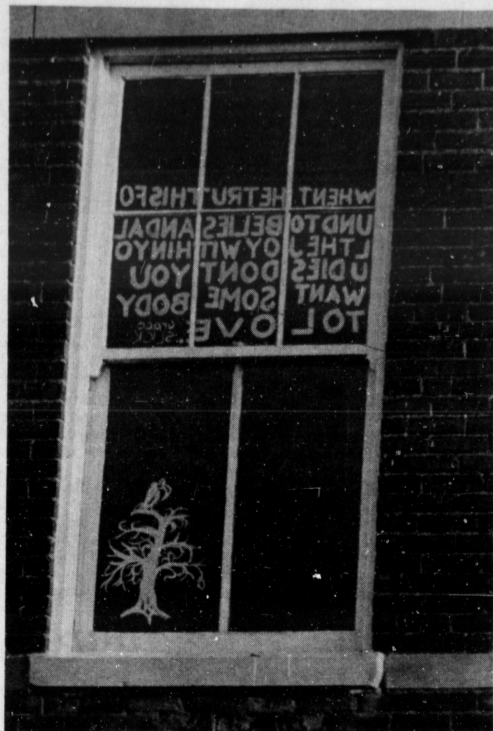 WHENT HETRU THISFO
UNDTO BELIES ANDAL
LTHEJ OYWIT HINYO
UDIES DONT YOU
WANT SOME BODY
TOL OVE
Grace
Slick